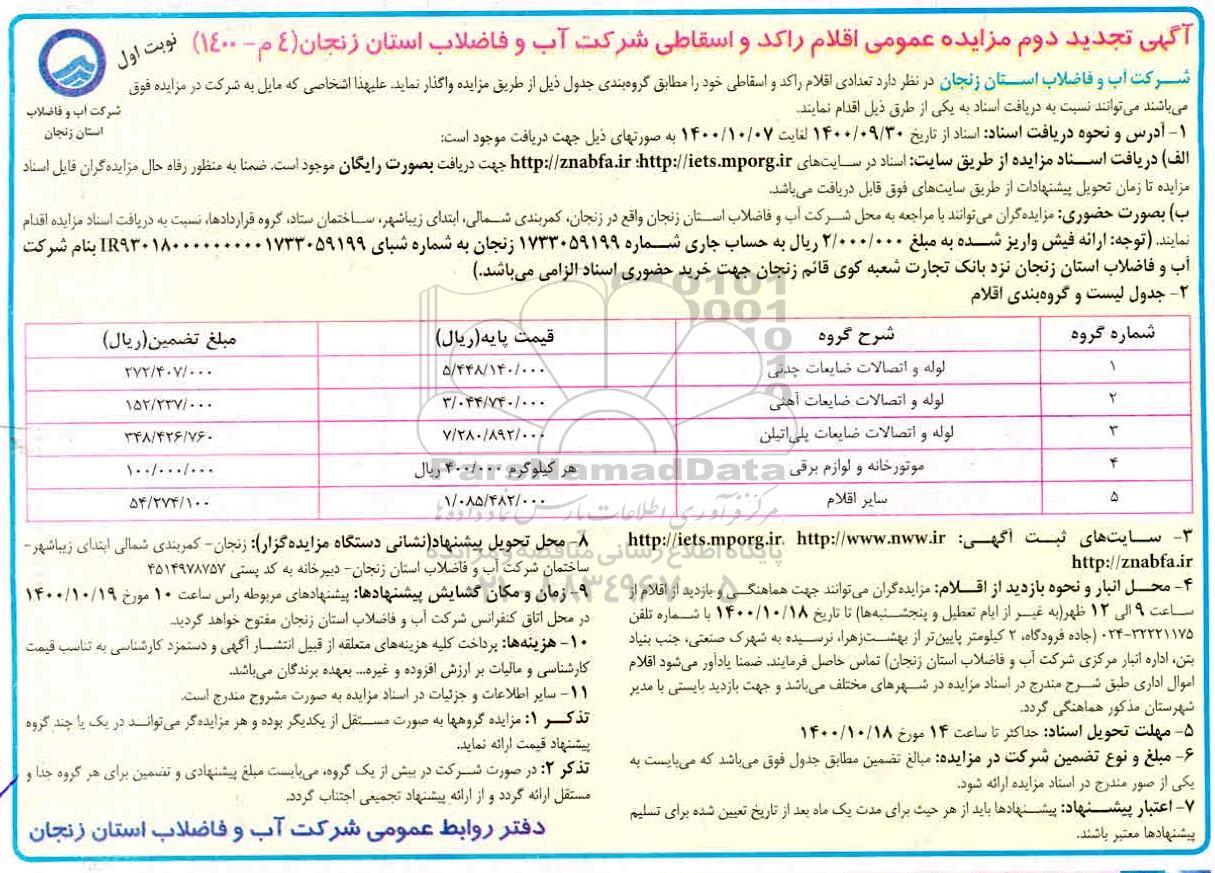 آگهی تجدید دوم مزایده عمومی اقلام راکد و اسقاطی شرکت آب و فاضلاب استان زنجان(٤ م- ١٤٠٠)
نوبت اول
شرکت آب و فاضلاب
استان زنجان
شرکت آب و فاضلاب استان زنجان در نظر دارد تعدادی اقلام راکد و اسقاطی خود را مطابق گروه‌بندی جدول ذیل از طریق مزایده واگذار نماید. علیهذا اشخاصی که مایل به شرکت در مزایده فوق
می‌باشند می‌توانند نسبت به دریافت اسناد به یکی از طرق ذیل اقدام نمایند.
۱- آدرس و نحوه دریافت اسناد: اسناد از تاریخ ۱۴۰۰/۰۹/۳۰ لغایت ۱۴۰۰/۱۰/۰۷ به صورتهای ذیل جهت دریافت موجود است:
الف) دریافت اسناد مزایده از طریق سایت: اسناد در سایت‌های http://znabfa.ir :http://iets.mporg.ir جهت دریافت بصورت رایگان موجود است. ضمنا به منظور رفاه حال مزایده‌گران فایل اسناد
مزایده تا زمان تحویل پیشنهادات از طریق سایت‌های فوق قابل دریافت می‌باشد.
ب) بصورت حضوری: مزایده‌گران می‌توانند با مراجعه به محل شرکت آب و فاضلاب استان زنجان واقع در زنجان، کمربندی شمالی، ابتدای زیباشهر، ساختمان ستاد، گروه قراردادها، نسبت به دریافت اسناد مزایده اقدام
نمایند. (توجه: ارائه فیش واریز شده به مبلغ ۲/۰۰۰/۰۰۰ ریال به حساب جاری شماره ۱۷۳۳۰۵۹۱۹۹ زنجان به شماره شبای IR۹۳۰۱۸۰۰۰۰۰۰۰۰۰۰۱۷۳۳۰۵۹۱۹۹ بنام شرکت
آب و فاضلاب استان زنجان نزد بانک تجارت شعبه کوی قائم زنجان جهت خرید حضوری اسناد الزامی می‌باشد.)
۲- جدول لیست و گروه‌بندی اقلام
شماره گروه شرح گروه قیمت پایه(ریال) مبلغ تضمین(ریال)
۱ لوله و اتصالات ضایعات چدنی ۵/۴۴۸/۱۴۰/۰۰۰ ۲۷۲/۴۰۷/۰۰۰
۲ لوله و اتصالات ضایعات آهنی ۳/۰۴۴/۷۴۰/۰۰۰ ۱۵۲/۲۳۷/۰۰۰
۳ لوله و اتصالات ضایعات پلی‌اتیلن ۷/۲۸۰/۸۹۲/۰۰۰ ۳۴۸/۴۲۶/۷۶۰
۴ موتورخانه و لوازم برقی هر کیلوگرم ۴۰۰/۰۰۰ ریال ۱۰۰/۰۰۰/۰۰۰
۵ سایر اقلام ۱/۰۸۵/۴۸۲/۰۰۰ ۵۴/۲۷۴/۱۰۰
ParsNamadData
مرکز فرآوری اطلاعات پارس نماد داده‌ها
پایگاه اطلاع رسانی مناقصه و مزایده
۳- سایت‌های ثبت آگهی: http://iets.mporg.ir. http://www.nww.ir
http://znabfa.ir
۴- محل انبار و نحوه بازدید از اقلام: مزایده‌گران می‌توانند جهت هماهنگی و بازدید از اقلام از
ساعت ۹ الی ۱۲ ظهر(به غیر از ایام تعطیل و پنجشنبه‌ها) تا تاریخ ۱۴۰۰/۱۰/۱۸ با شماره تلفن
۰۲۴-۳۲۲۲۱۱۷۵ (جاده فرودگاه، ۲ کیلومتر پایین‌تر از بهشت‌زهرا، نرسیده به شهرک صنعتی، جنب بنیاد
بتن، اداره انبار مرکزی شرکت آب و فاضلاب استان زنجان) تماس حاصل فرمایند. ضمنا یادآور می‌شود اقلام
اموال اداری طبق شرح مندرج در اسناد مزایده در شهرهای مختلف می‌باشد و جهت بازدید بایستی با مدیر
شهرستان مذکور هماهنگی گردد.
۵- مهلت تحویل اسناد: حداکثر تا ساعت ۱۴ مورخ ۱۴۰۰/۱۰/۱۸
۶- مبلغ و نوع تضمین شرکت در مزایده: مبالغ تضمین مطابق جدول فوق می‌باشد که می‌بایست به
یکی از صور مندرج در اسناد مزایده ارائه شود.
۷- اعتبار پیشنهاد: پیشنهادها باید از هر حیث برای مدت یک ماه بعد از تاریخ تعیین شده برای تسلیم
پیشنهادها معتبر باشند.
۸- محل تحویل پیشنهاد(نشانی دستگاه مزایده‌گزار): زنجان- کمربندی شمالی ابتدای زیباشهر-
ساختمان شرکت آب و فاضلاب استان زنجان- دبیرخانه به کد پستی ۴۵۱۴۹۷۸۷۵۷
۹- زمان و مکان گشایش پیشنهادها: پیشنهادهای مربوطه راس ساعت ۱۰ مورخ ۱۴۰۰/۱۰/۱۹
در محل اتاق کنفرانس شرکت آب و فاضلاب استان زنجان مفتوح خواهد گردید.
۱۰- هزینه‌ها: پرداخت کلیه هزینه‌های متعلقه از قبیل انتشار آگهی و دستمزد کارشناسی به تناسب قیمت
کارشناسی و مالیات بر ارزش افزوده و غیره... بعهده برندگان می‌باشد.
۱۱- سایر اطلاعات و جزئیات در اسناد مزایده به صورت مشروح مندرج است.
تذکر ۱: مزایده گروهها به صورت مستقل از یکدیگر بوده و هر مزایده‌گر می‌تواند در یک یا چند گروه
پیشنهاد قیمت ارائه نماید.
تذکر ۲: در صورت شرکت در بیش از یک گروه، می‌بایست مبلغ پیشنهادی و تضمین برای هر گروه جدا و
مستقل ارائه گردد و از ارائه پیشنهاد تجمیعی اجتناب گردد.
دفتر روابط عمومی شرکت آب و فاضلاب استان زنجان